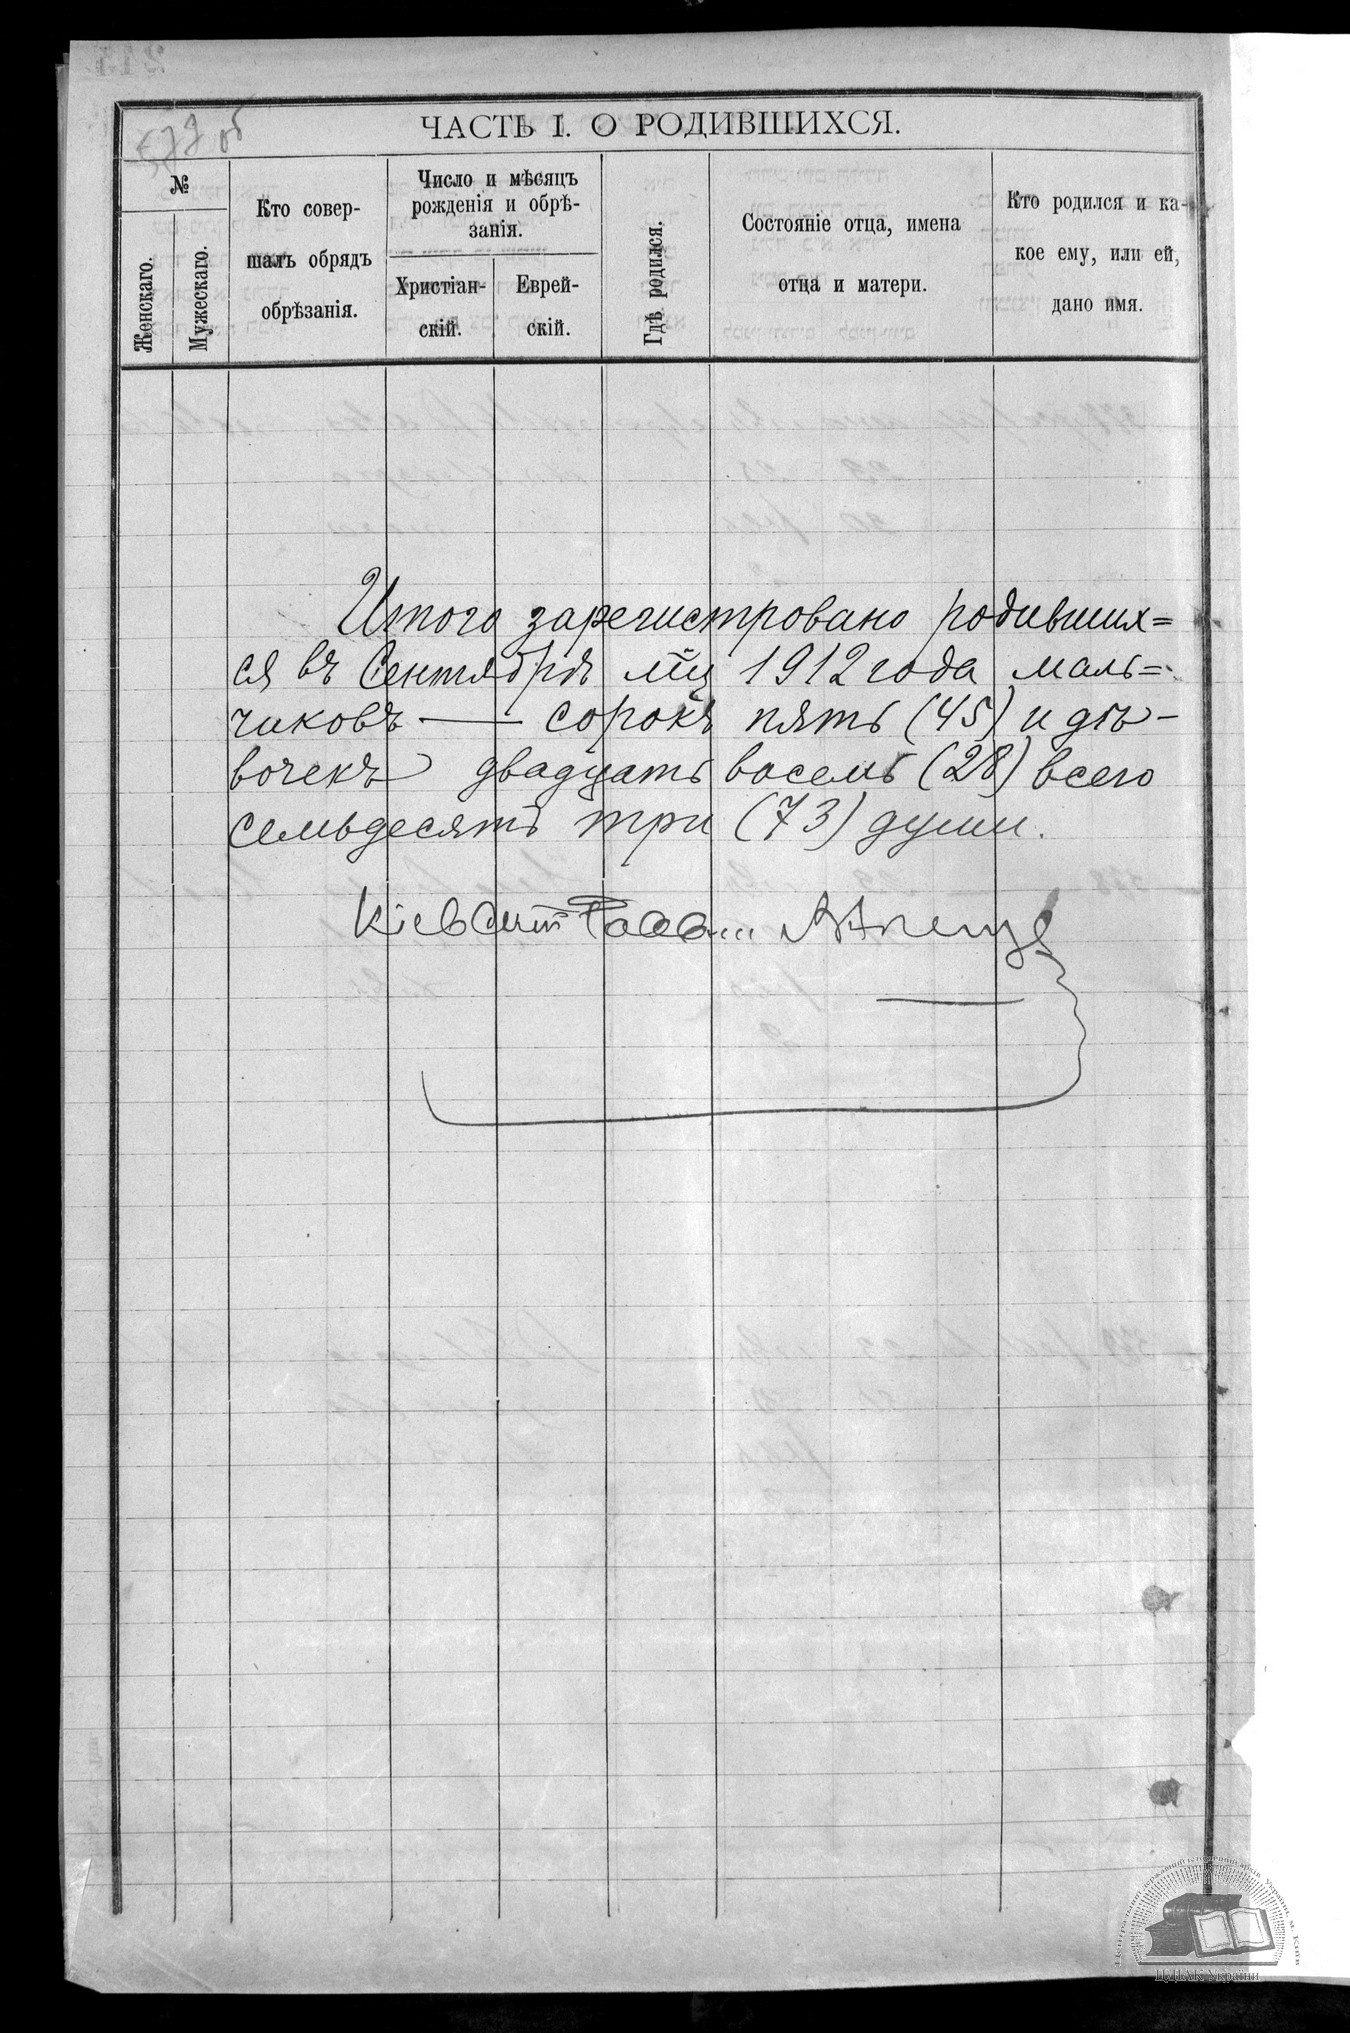 ЧАСТЬ I. О РОДИВШИХСЯ.
№
Женскаго.
Мужескаго.
Кто совер-
шалъ обрядъ
обрѣзанія.
Число и мѣсяцъ
рожденія и обрѣ-
занія.
Христіан-
скій.
Еврей-
скій.
Гдѣ родился.
Состояніе отца, имена
отца и матери.
Кто родился и ка-
кое ему, или ей,
дано имя.
Итого зарегистровано родивших=
ся въ Сентябрѣ мцѣ 1912 года маль=
чиковъ — сорокъ пять (45) и дѣ-
вочекъ двадцать восемь (28) всего
семьдесятъ три (73) души.
ЦДІАК України